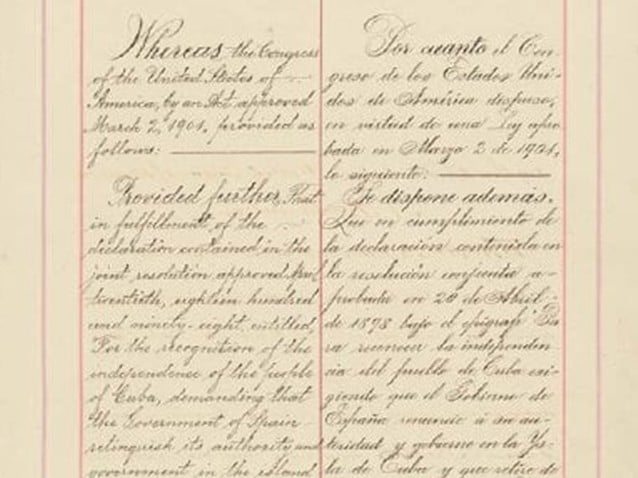 Whereas the Congress
of the United States of
America, by an Act approved
March 2, 1901, provided as
follows:
Provided further, That
in fulfillment of the
declaration contained in the
joint resolution approved April
twentieth, eighteen hundred
and ninety-eight, entitled,
For the recognition of the
independence of the people
of Cuba, demanding that
the Government of Spain
relinquish its authority and
government in the island
Por cuanto el Con-
greso de los Estados Uni-
dos de América dispuso,
en virtud de una Ley apro
bada en Marzo 2 de 1901,
lo siguiente:
Se dispone además,
Que en cumplimiento de
la declaración contenida en
la resolución conjunta a-
probada en 20 de Abril
de 1898 bajo el epígrafe Pa
ra reconocer la independen
cia del pueblo de Cuba exi-
giendo que el Gobierno de
España renuncie á su au-
toridad y gobierno en la Ys-
la de Cuba y que retire de